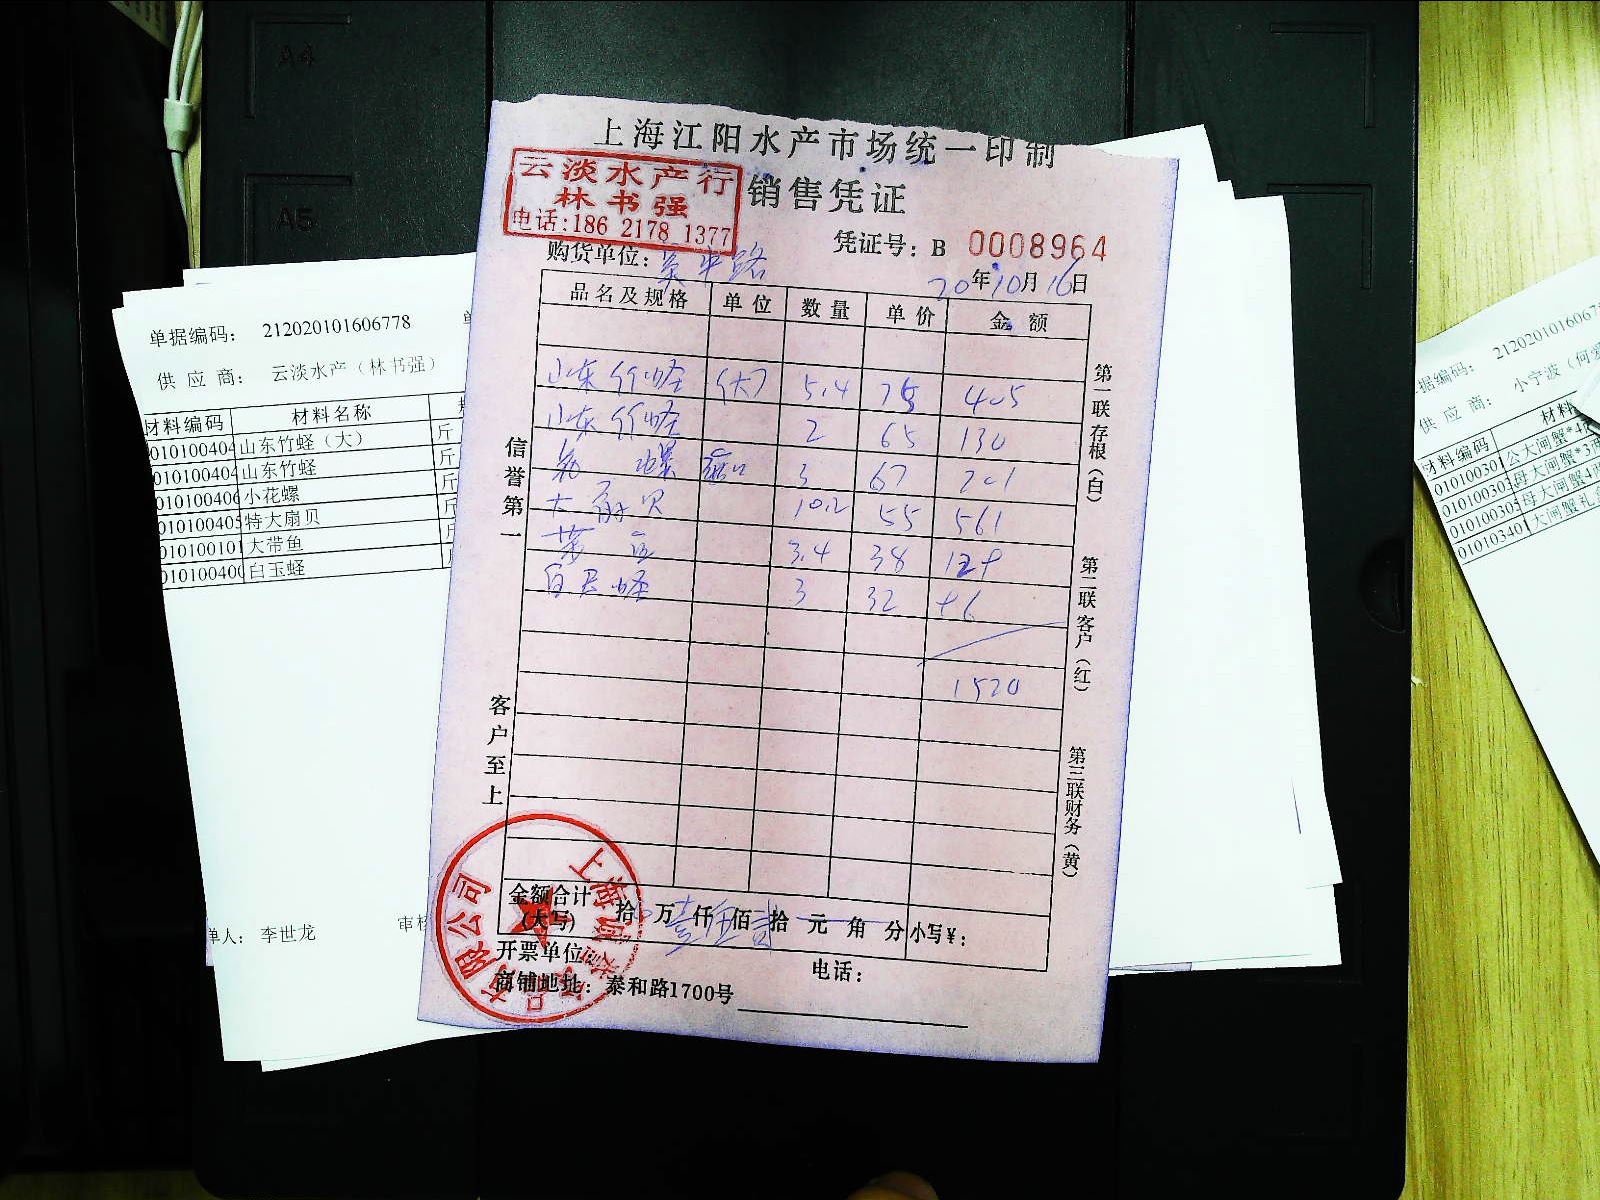 A4
A5
上海江阳水产市场统一印制
销售凭证
云淡水产行
林书强
电话:186 2178 1377
凭证号: B 0008964
购货单位:
20年10月16日
品名及规格 单位 数量 单价 金额
山东竹蛏 (大) 5.4 75 405
山东竹蛏 2 65 130
花螺 3 67 201
大扇贝 10.2 55 561
3.4 38 129
白玉蛏 3 32 96
1520
信誉第一
客户至上
第一联存根(白)
第二联客户(红)
第三联财务(黄)
金额合计
(大写)
拾 万 仟 佰 拾 元 角 分 小写¥:
壹 伍 贰
开票单位
电话:
商铺地址: 泰和路1700号
上海
有限公司
单据编码: 212020101606778
供应商: 云淡水产(林书强)
材料编码 材料名称
010100404 山东竹蛏(大) 斤
010100404 山东竹蛏 斤
010100406 小花螺 斤
010100405 特大扇贝 斤
010100101 大带鱼 斤
010100400 白玉蛏
单人: 李世龙 审核
据编码: 21202010160678
供应商: 小宁波(何爱
材料编码 材料
01010030 公大闸蟹*4
01010030 母大闸蟹*3两
01010030 母大闸蟹4两
01010340 大闸蟹礼盒